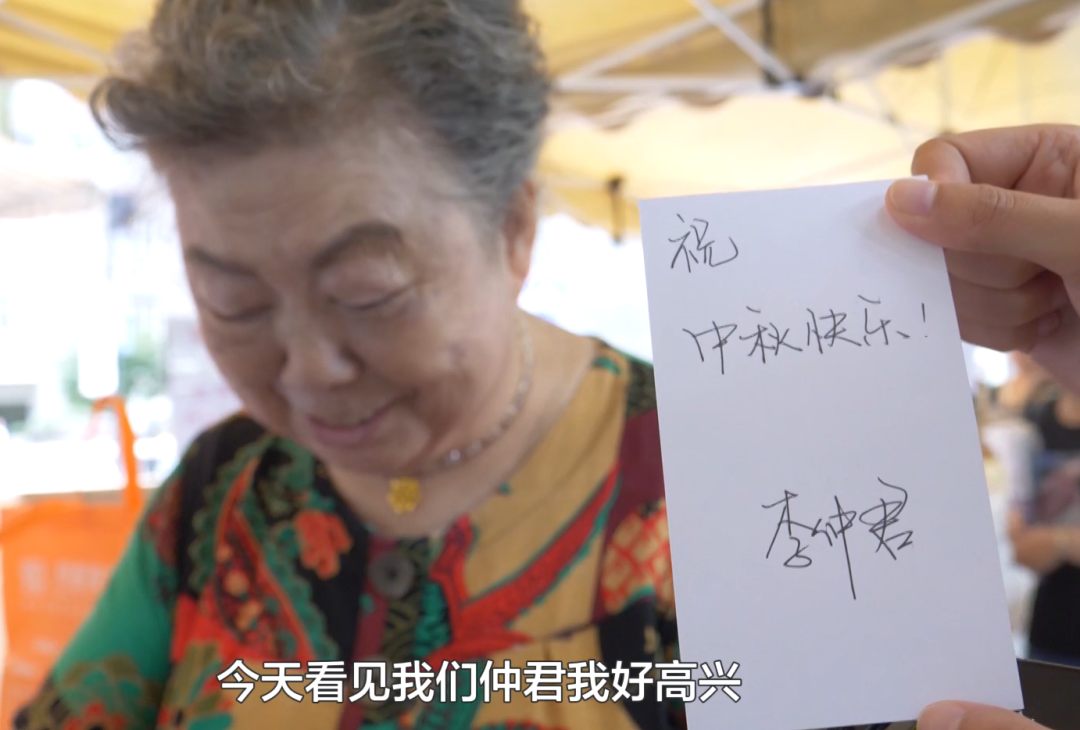 祝
中秋快乐!
李仲君
今天看见我们仲君我好高兴